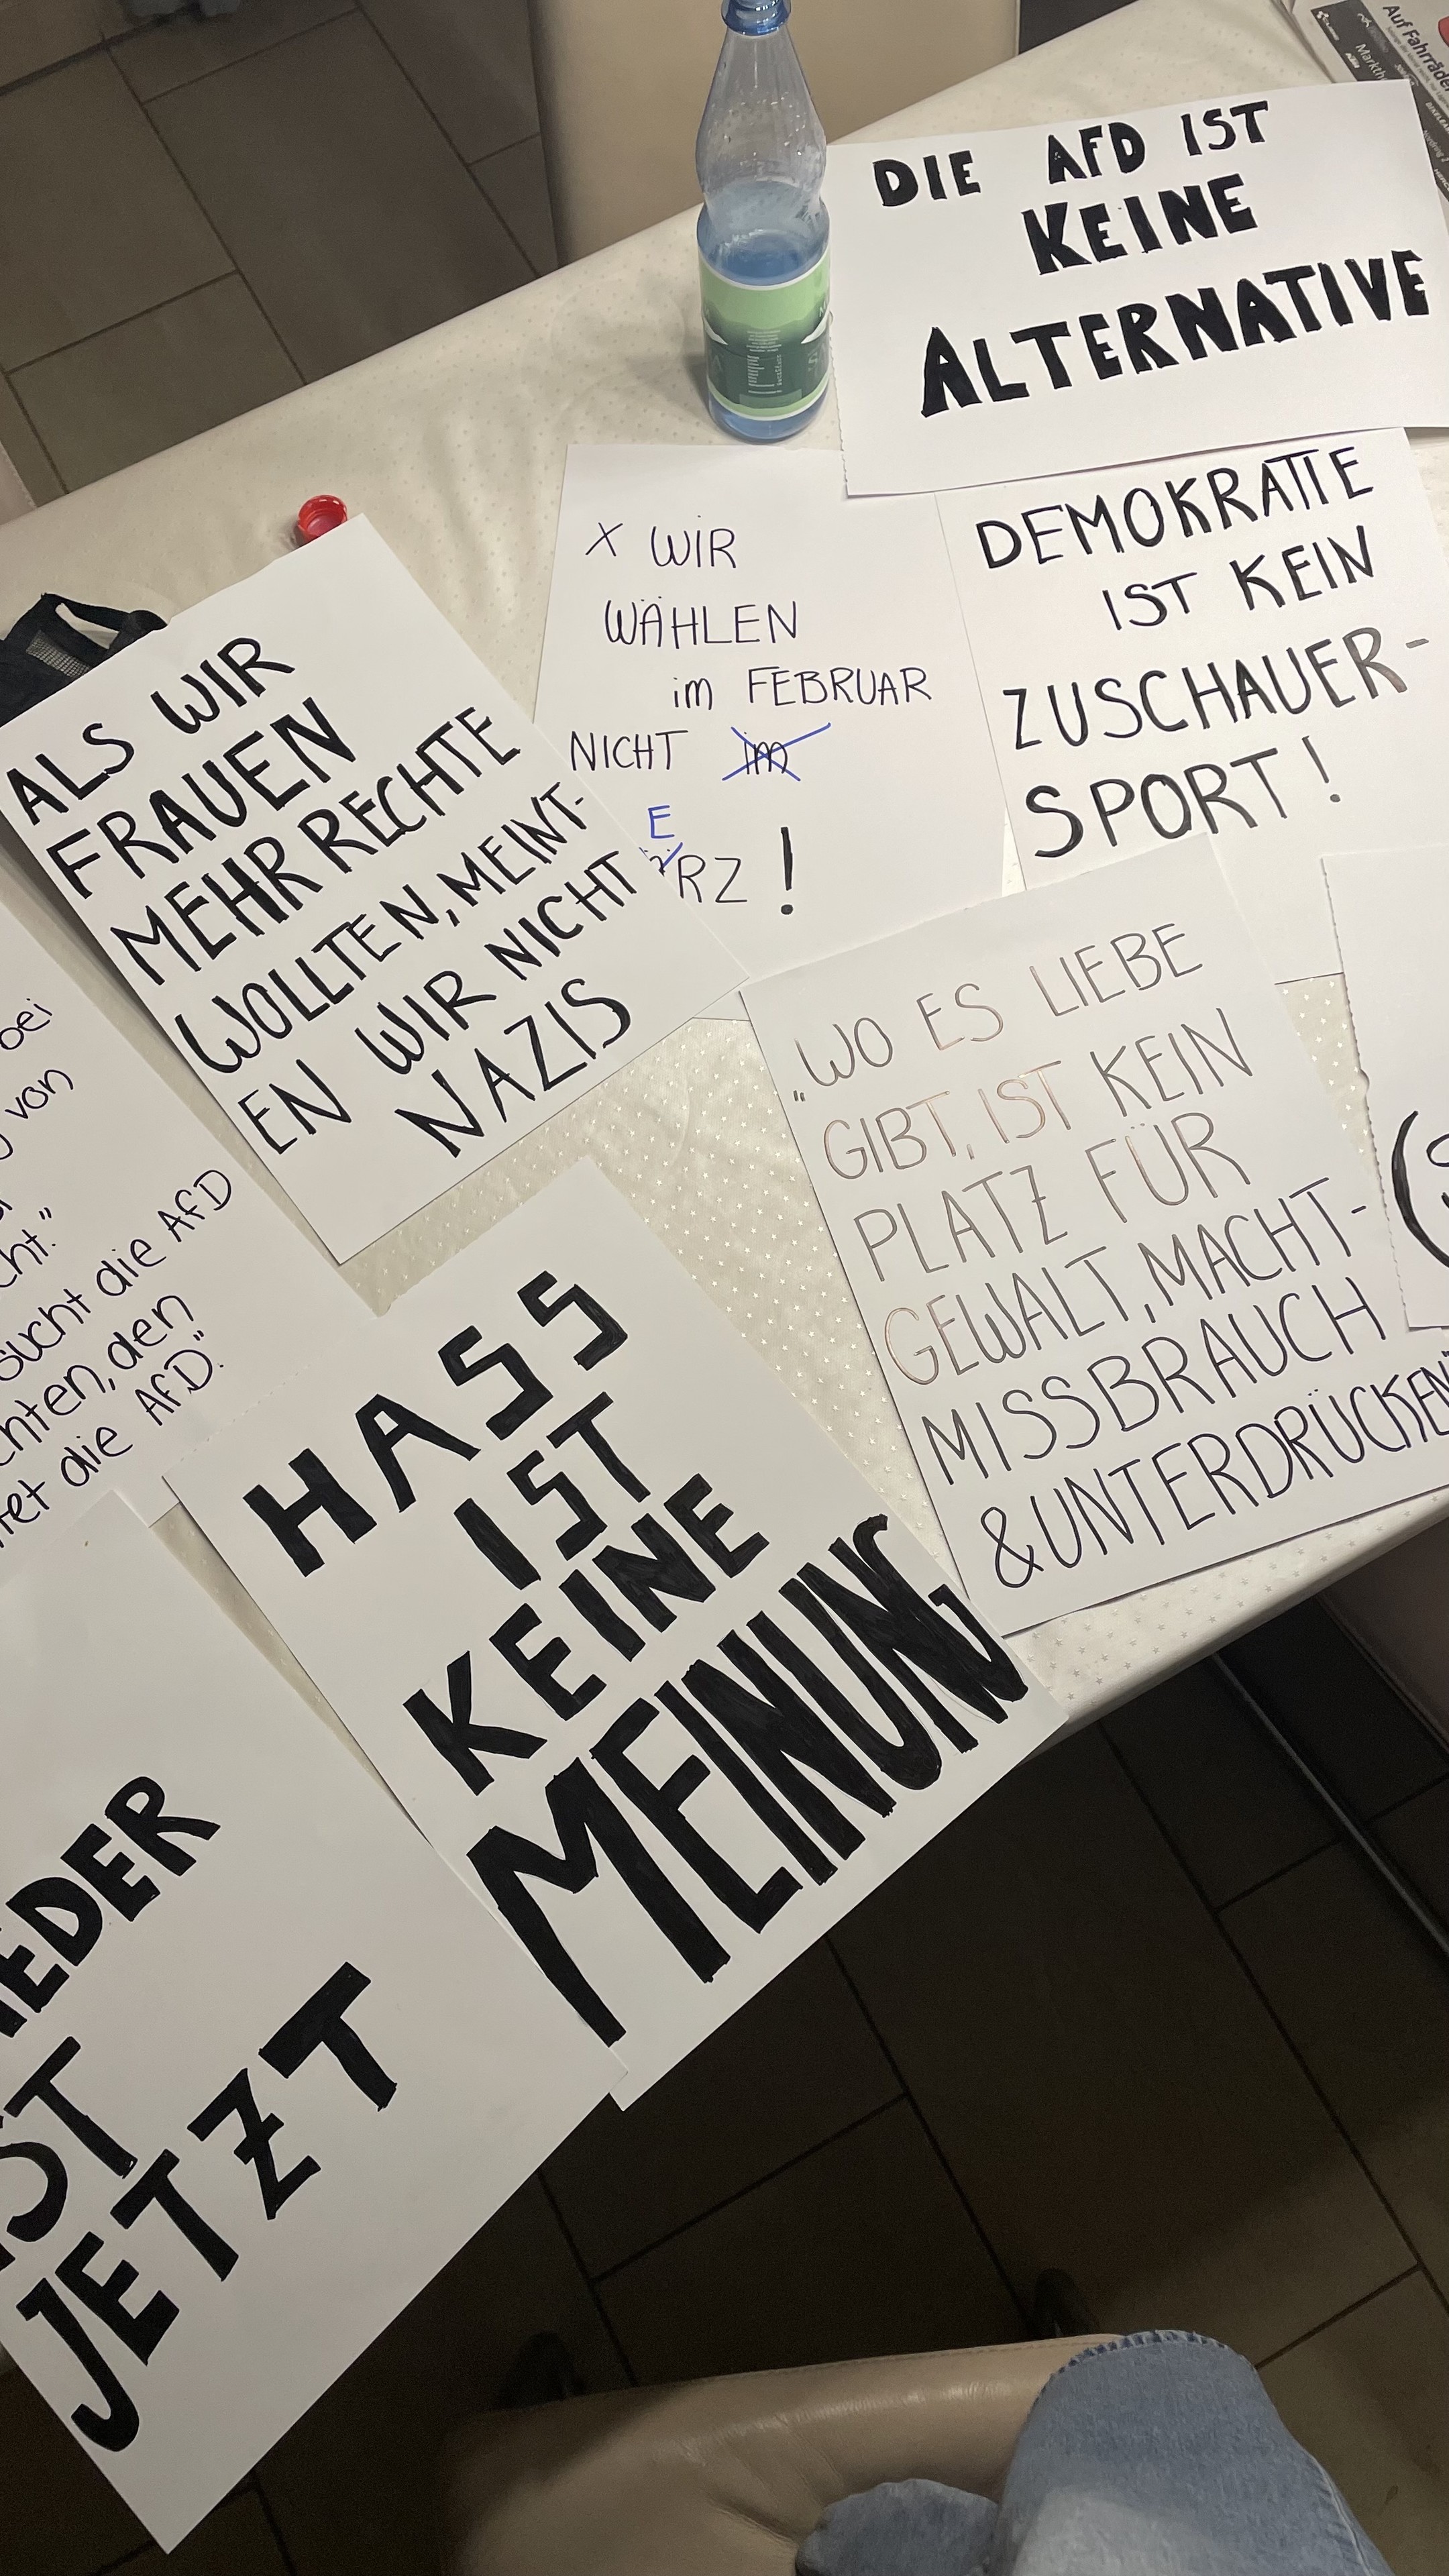 Auf Fahrräder
DIE AFD IST
KEINE
ALTERNATIVE
X WIR
WÄHLEN
im FEBRUAR
NICHT im
E
RZ!
DEMOKRATIE
IST KEIN
ZUSCHAUER-
SPORT!
ALS WIR
FRAUEN
MEHR RECHTE
WOLLTEN, MEINT-
EN WIR NICHT
NAZIS
„WO ES LIEBE
GIBT, IST KEIN
PLATZ FÜR
GEWALT, MACHT-
MISSBRAUCH
& UNTERDRÜCKEN
bei
von
cht."
sucht die AfD
chten, den
tet die AfD."
HASS
IST
KEINE
MEINUNG
IEDER
ST
JETZT
(S